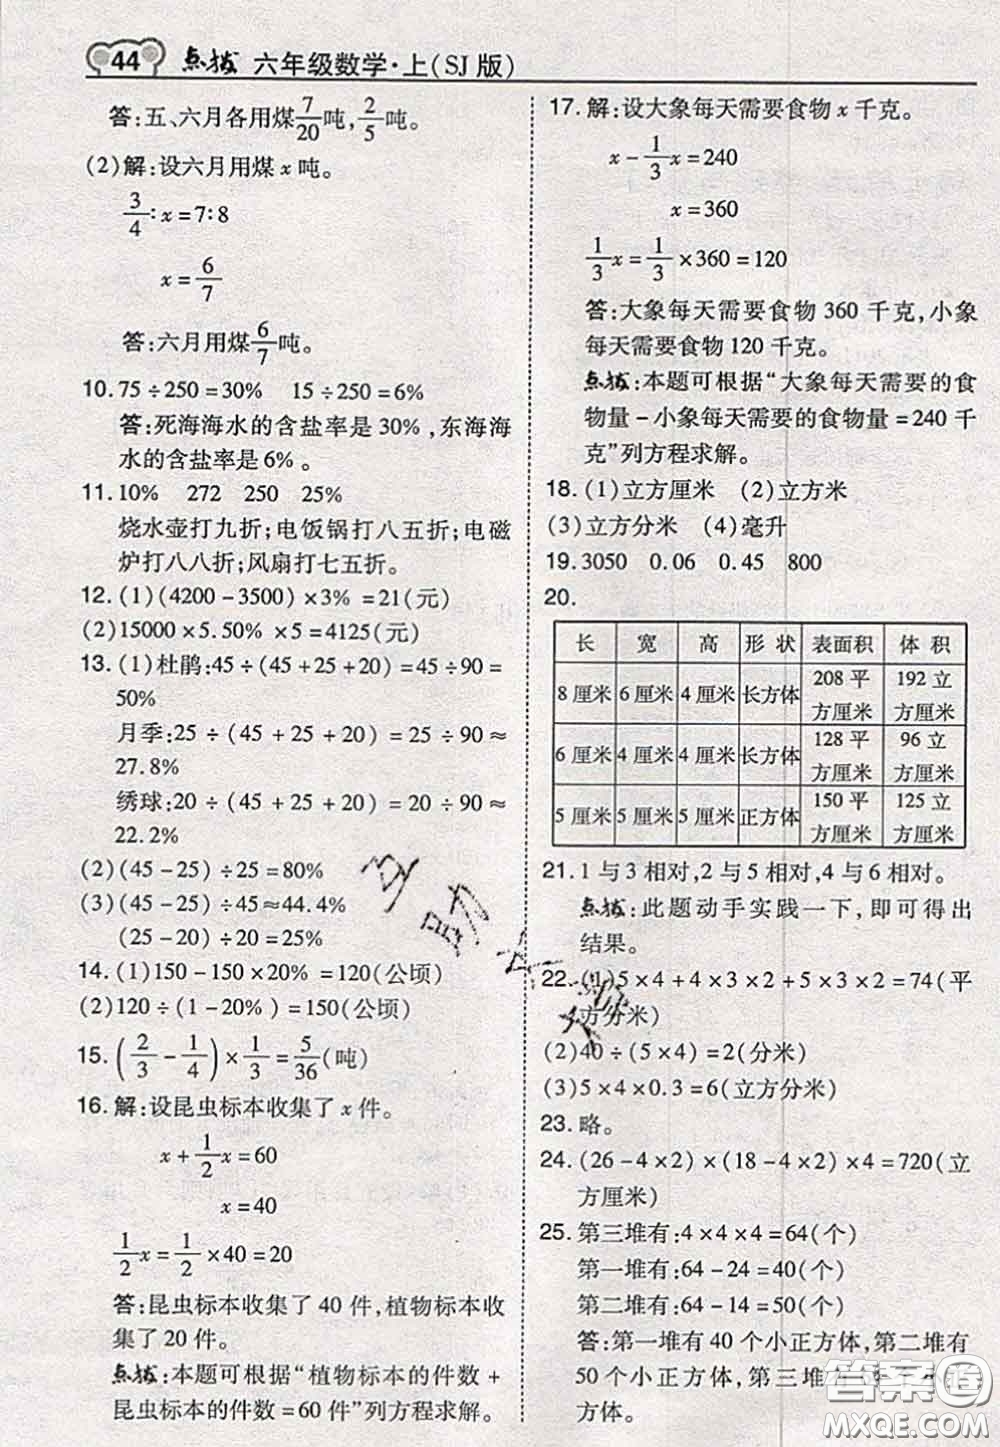 44 点拨 六年级数学·上(SJ版)
答:五、六月各用煤7/20吨,2/5吨。
(2)解:设六月用煤x吨。
3/4:x=7:8
x=6/7
答:六月用煤6/7吨。
10. 75÷250=30% 15÷250=6%
答:死海海水的含盐率是30%,东海海
水的含盐率是6%。
11. 10% 272 250 25%
烧水壶打九折;电饭锅打八五折;电磁
炉打八八折;风扇打七五折。
12. (1)(4200-3500)×3%=21(元)
(2)15000×5.50%×5=4125(元)
13. (1)杜鹃:45÷(45+25+20)=45÷90=
50%
月季:25÷(45+25+20)=25÷90≈
27.8%
绣球:20÷(45+25+20)=20÷90≈
22.2%
(2)(45-25)÷25=80%
(3)(45-25)÷45≈44.4%
(25-20)÷20=25%
14. (1)150-150×20%=120(公顷)
(2)120÷(1-20%)=150(公顷)
15. (2/3-1/4)×1/3=5/36(吨)
16. 解:设昆虫标本收集了x件。
x+1/2x=60
x=40
1/2x=1/2×40=20
答:昆虫标本收集了40件,植物标本收
集了20件。
点拨:本题可根据“植物标本的件数+
昆虫标本的件数=60件”列方程求解。
17. 解:设大象每天需要食物x千克。
x-1/3x=240
x=360
1/3x=1/3×360=120
答:大象每天需要食物360千克,小象
每天需要食物120千克。
点拨:本题可根据“大象每天需要的食
物量-小象每天需要的食物量=240千
克”列方程求解。
18. (1)立方厘米 (2)立方米
(3)立方分米 (4)毫升
19. 3050 0.06 0.45 800
20.
长 宽 高 形状 表面积 体积
8厘米 6厘米 4厘米 长方体 208平方厘米 192立方厘米
6厘米 4厘米 4厘米 长方体 128平方厘米 96立方厘米
5厘米 5厘米 5厘米 正方体 150平方厘米 125立方厘米
21. 1与3相对,2与5相对,4与6相对。
点拨:此题动手实践一下,即可得出
结果。
22. (1)5×4+4×3×2+5×3×2=74(平
方分米)
(2)40÷(5×4)=2(分米)
(3)5×4×0.3=6(立方分米)
23. 略。
24. (26-4×2)×(18-4×2)×4=720(立
方厘米)
25. 第三堆有:4×4×4=64(个)
第一堆有:64-24=40(个)
第二堆有:64-14=50(个)
答:第一堆有40个小正方体,第二堆有
50个小正方体,第三堆有64个小正
方体。
答案圈
MXQE.COM